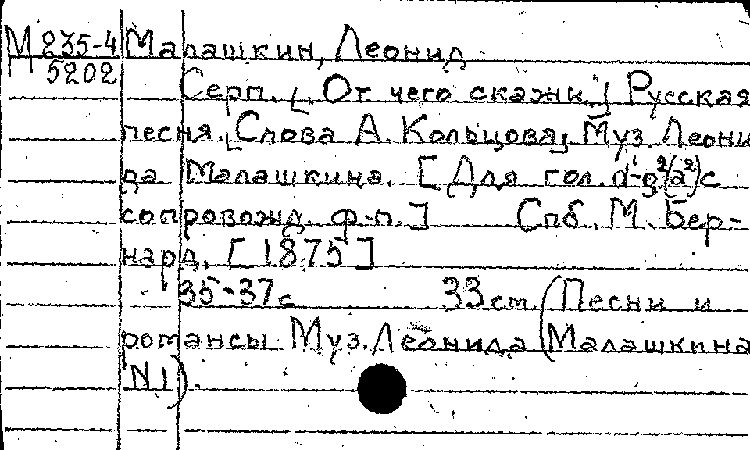 М 235-4 Малашкин, Леонид
5202
Серп. [От чего скажи.] Русская
песня. [Слова А. Кольцова, Муз Леони
да Малашкина. [Для гол. d¹-g²(a²) с
сопровожд. ф-п.] Спб. М. Бер-
нард. [1875]
35-37с 33 см (Песни и
романсы Муз. Леонида Малашкина
N 1).